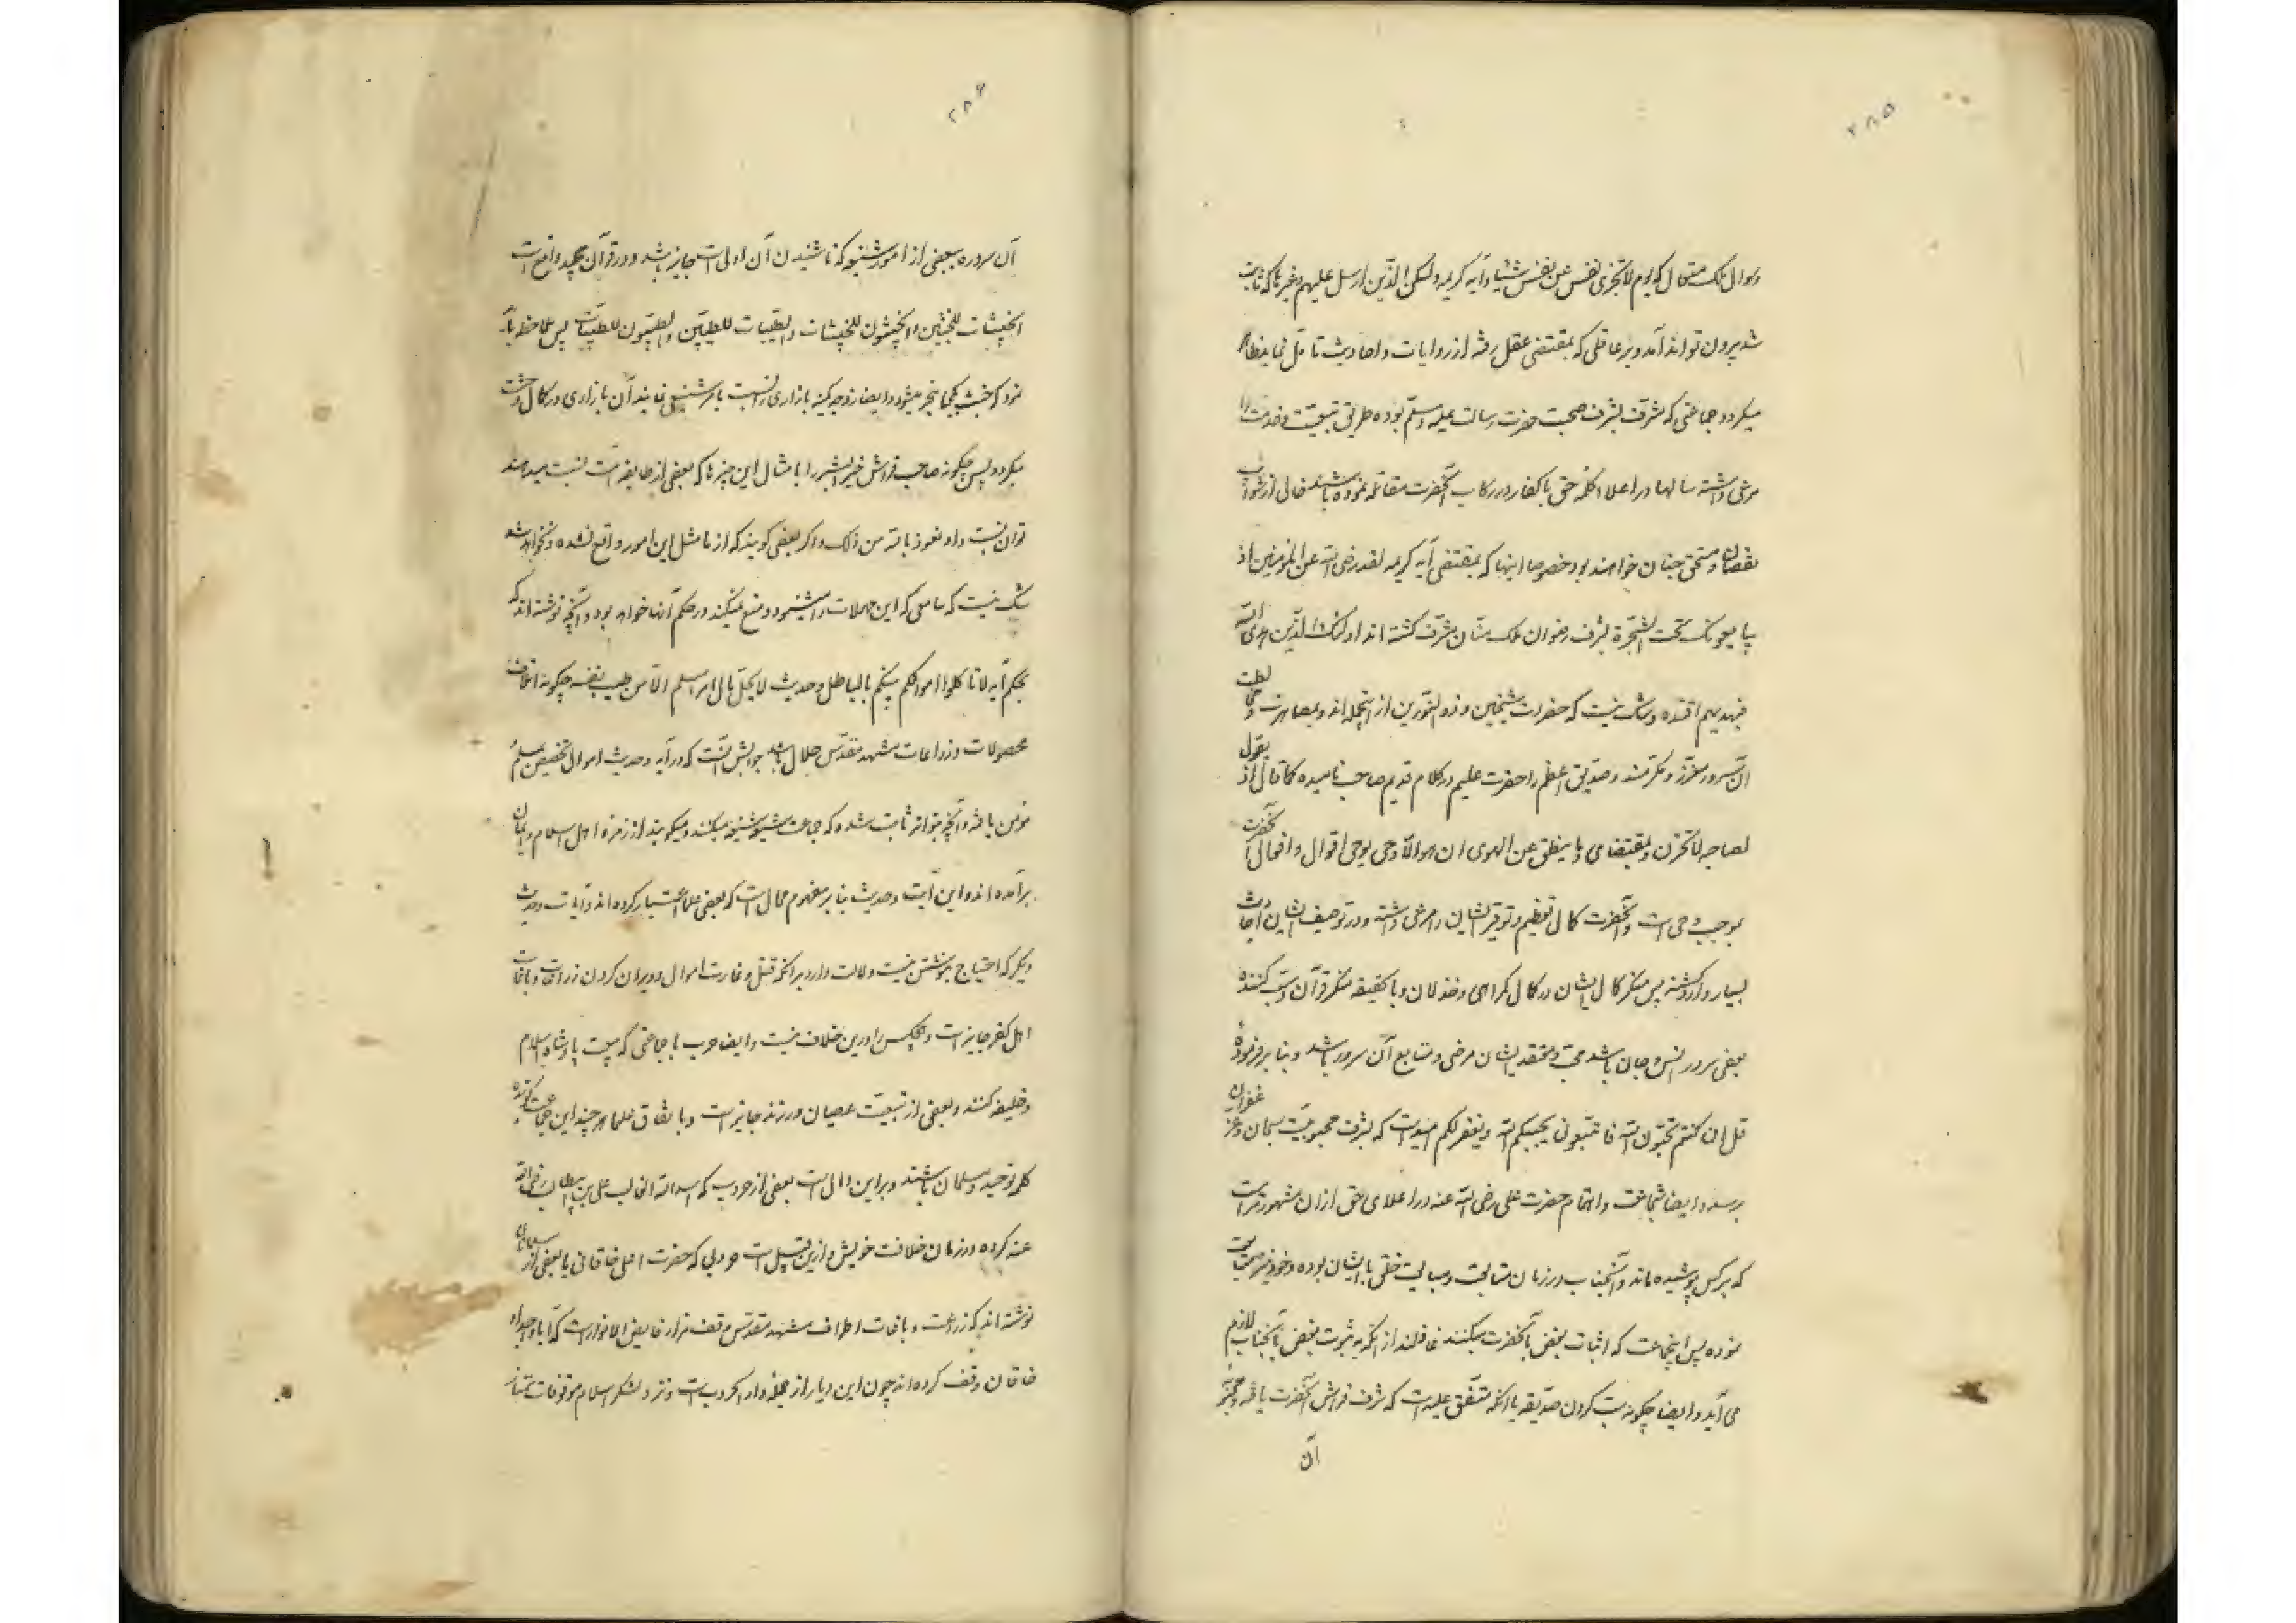 ۲۸۵
و سوال ملک متعال که یوم لاتجزی نفس عن نفس شیئا و آیه کریمه ولنسئلن الذین ارسل علیهم و غیرها که ثابت
شد بیرون تواند آمد و بر عاقلی که بمقتضی عقل رفته از روایات و احادیث تامل نماید ظاهر
میگردد جماعتی که مشرف بشرف صحبت حضرت رسالت علیه وسلم بوده طریق تبعیت و خدمت را
مرعی داشته سالها در اعلاء کلمه حق با کفار در رکاب آنحضرت مقاتله نموده باشند خالی از شوائب
نقصان و مستحق جنان خواهند بود خصوصا اینها که بمقتضی آیه کریمه لقد رضی الله عن المؤمنین اذ
یبایعونک تحت الشجرة بشرف رضوان ملک منان مشرف گشته اند اولئک الذین هدی الله
فبهدیهم اقتده و شک نیست که حضرات شیخین و ذو النورین از آنجمله اند و بمصاهرت و
آن سرور معزز و مکرمند و صدیق اعظم را حضرت علیم در کلام قدیم صاحب نامیده کما قال اذ یقول
لصاحبه لاتحزن و بمقتضای و ما ینطق عن الهوی ان هو الا وحی یوحی اقوال و افعال آنحضرت
بموجب وحی است و آنحضرت کمال تعظیم و توقیر ایشان را مرعی داشته و در توصیف ایشان احادیث
بسیار وارد گشته پس منکر کمال ایشان در کمال گمراهی و خذلان و بالحقیقه منکر قرآن و سب کننده
بعضی سرور انس و جان باشد محب و معتقد ایشان مرضی و متابع آن سرور باشد و بنا بر فرمودهٔ
قل ان کنتم تحبون الله فاتبعونی یحببکم الله و یغفر لکم امید است که بشرف محبوبیت سبحان و عز غفران
برسد و ایضا شجاعت و اهتمام حضرت علی رضی الله عنه در اعلای حق از آن مشهورتر است
که بر کس پوشیده ماند و آنجناب در زمان متابعت و مبایعت خلفی با ایشان بوده و خود نیز
نموده پس اینجماعت که اثبات بغض بآنحضرت میکنند غافلند از آنکه به ثبوت بغض بآنجناب لازم
می آید و ایضا چگونه سب کردن صدیقه با آنکه متفق علیه است که شرف فراش آنحضرت یافته و محبوبهٔ
آن
۲۸۶
آن سروره ببعضی از امور شنیعه که ناشنیدن آن اولی است جایز باشد و در قرآن مجید واقع است
الخبیثات للخبیثین و الخبیثون للخبیثات و الطیبات للطیبین و الطیبون للطیبات پس ملاحظه باید
نمود که خبث بکجا منجر میشود و ایضا زوجه کمینه بازاری را نسبت بامر شنیع نمایند آن بازاری در کمال وحشت
میگردد پس چگونه صاحب فراش خیر البشر را بامثال این چیزها که بعضی از طایفه است نسبت میدهند
توان نسبت داد نعوذ بالله من ذلک و اگر بعضی گویند که از ما مثل این امور واقع نشده و نخواهد شد
شک نیست که سامعی که این مهملات را میشنود و منع نمیکند در حکم آنها خواهد بود و آنچه نوشته اند که
بحکم آیه لا تاکلوا اموالکم بینکم بالباطل و حدیث لا یحل مال امرء مسلم الا من طیب نفسه چگونه اتلاف
محصولات و زراعات مشهد مقدس حلال باشد جوابش آنست که در آیه و حدیث اموال تخصیص بمسلم
مومن یافته و آنچه بتواتر ثابت شده که جماعت شیعه شنیعه میکنند و میگویند از زمره اهل اسلام و ایمان
برآمده اند و این آیت و حدیث بنا بر مفهوم مخالفست که بعضی علما اعتبار کرده اند و آیات و حدیث
دیگر که احتیاج بنوشتن نیست دلالت دارد بر آنکه قتل و غارت اموال و ویران کردن زراعات و باغات
اهل کفر جایز است و هیچکس را درین خلاف نیست و ایضا حرب با جماعتی که بیعت پادشاه اسلام
و خلیفه کنند و بعضی از تبعیت عصیان ورزند جایز است و باتفاق علما هر چند این جماعت گوینده
کلمه توحید و مسلمان باشند و بر این دال است بعضی از حروب که اسد الله الغالب علی بن ابیطالب رضی الله
عنه کرده در زمان خلافت خویش و ازین قبیل است حروبی که حضرت اعلی خاقانی با بعضی از مسلمانان
نوشته اند که زراعت و باغات اطراف مشهد مقدس وقف مزار فایض الانوار است که آبا و اجداد
خاقان وقف کرده اند چون این دیار از جمله دار الحرب است و نزد لشکر اسلام موقوفات